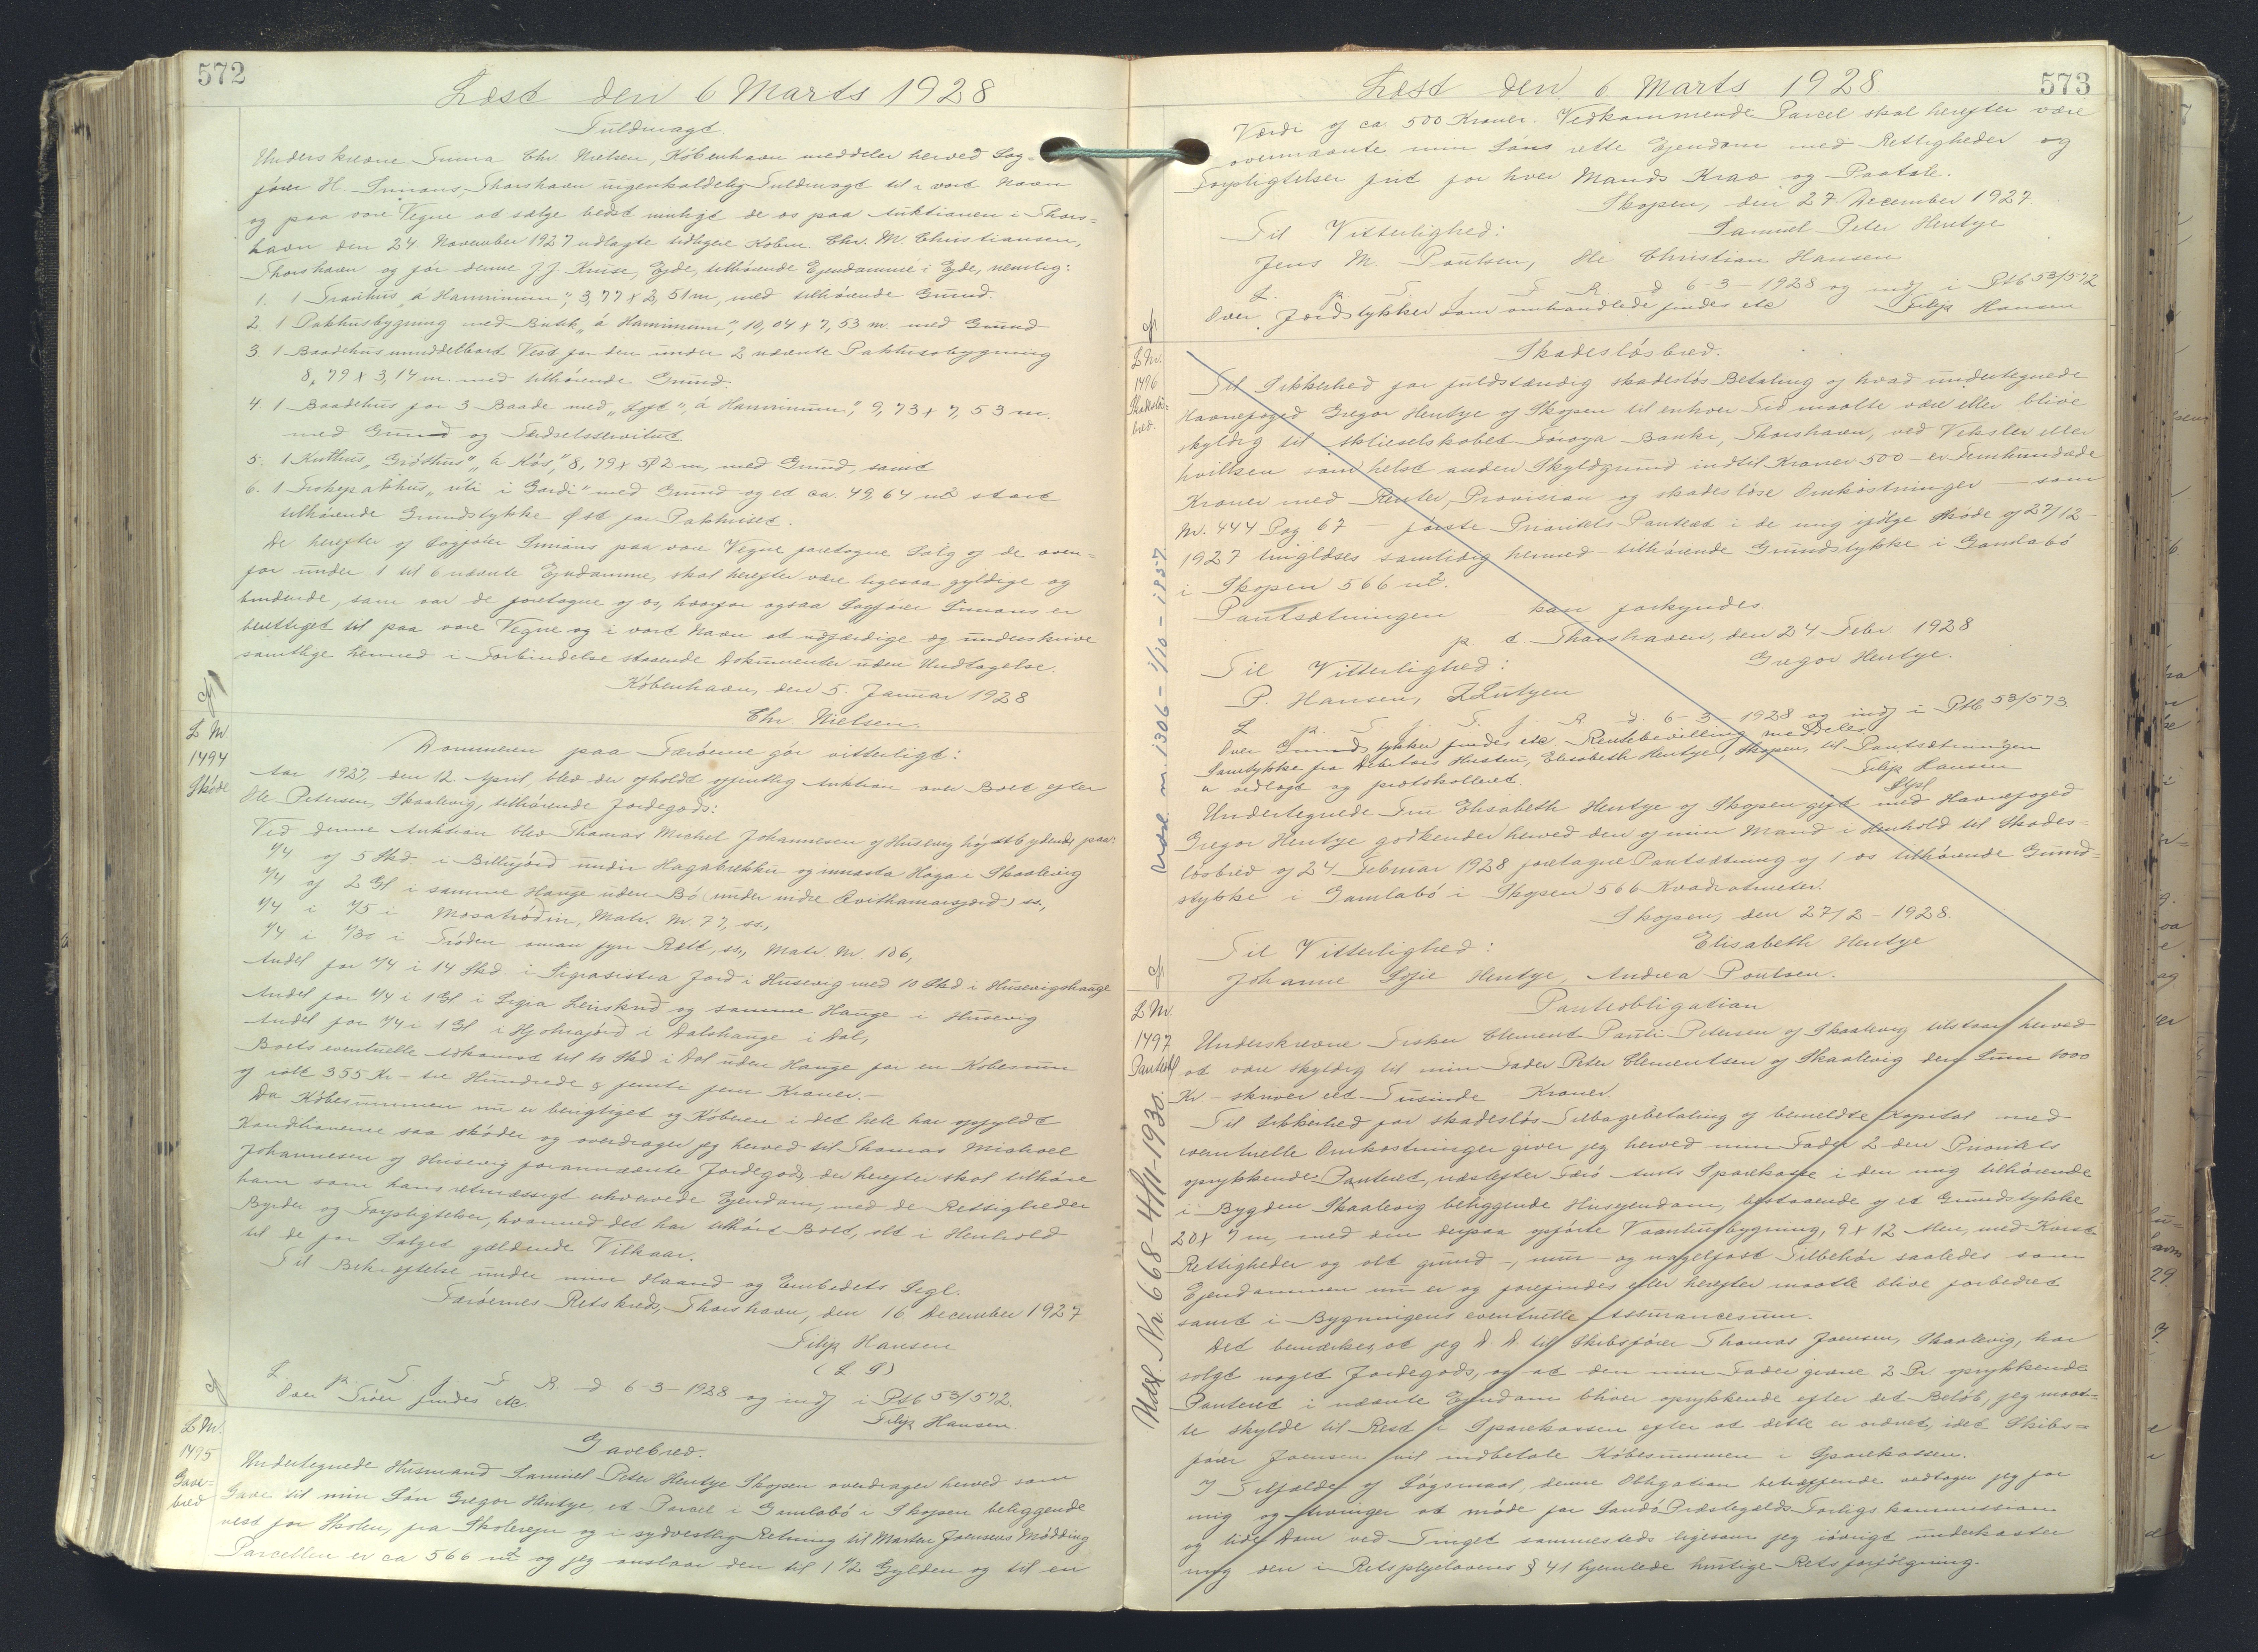 572
Læst den 6 Marts 1928
Fuldmagt.
Underskrevne Firma Chr. Nielsen, København meddeler herved Sag-
fører H. Simons, Thorshavn uigenkaldelig Fuldmagt til i vort Navn
og paa vore Vegne at sælge bedst muligt de os paa Auktionen i Thors-
havn den 24. November 1927 udlagte tidligere Købm. Chr. M. Christiansen,
Thorshavn og før denne J. J. Kruse, Ejde, tilhørende Ejendomme i Ejde, nemlig:
1. 1 Tranhus "á Hamrinum", 3,77 x 2,51 m, med tilhørende Grund.
2. 1 Pakhusbygning med Butik "á Hamrinum", 10,04 x 7,53 m. med Grund
3. 1 Baadehus umiddelbart Vest for den under 2 nævnte Pakhusbygning
8,79 x 3,14 m. med tilhørende Grund.
4. 1 Baadehus for 3 Baade med "Loft", "á Hamrinum", 9,73 x 7,53 m.
med Grund og Færdselsservitut.
5. 1 Kulhus "Gróthús", "á Kós", 8,79 x 5,2 m, med Grund, samt
6. 1 Fiskepakhus "úti í Gardi" med Grund og et ca. 49,64 m2 stort
tilhørende Grundstykke Øst for Pakhuset.
De herefter af Sagfører Simons paa vore Vegne foretagne Salg af de oven-
for under 1 til 6 nævnte Ejendomme, skal herefter være ligesaa gyldige og
bindende, som var de foretagne af os, hvorfor ogsaa Sagfører Simons er
berettiget til paa vore Vegne og i vort Navn at udfærdige og underskrive
samtlige hermed i Forbindelse staaende Dokumenter uden Undtagelse.
København, den 5. Januar 1928
Chr. Nielsen.
L Nr.
1494
Skøde
Dommeren paa Færøerne gør vitterligt:
Aar 1927, den 12 April blev der afholdt offentlig Auktion over Boet efter
Ole Petersen, Skaalevig, tilhørende Jordegods:
Ved denne Auktion blev Thomas Michel Johannesen af Husevig højstbydende paa:
1/4 af 5 Skd. i Billujörd undir Hagabrekku og innasta Haga i Skaalevig
1/4 af 2 Gl i samme Hauge uden Bø (under indre Kvithamarsjørd) ss.,
1/4 i 1/5 i Mosatrødin, Matr. Nr. 77, ss.,
1/4 i 1/30 i Trøden oman fyri Rætt, ss., Matr. Nr. 106,
Andel for 1/4 i 14 Skd. i Sigrasistra Jord i Husevig med 10 Skd i Husevigshauge
Andel for 1/4 i 1 Gl i Sigra Leiskrid og samme Hauge i Husevig
Andel for 1/4 i 1 Gl i Hjolrajørd i Dalshauge i Dal,
Boets eventuelle Adkomst til 10 Skd i Dal uden Hauge for en Købesum
af ialt 355 Kr – tre Hundrede & femti fem Kroner. –
Da Købesummen nu er berigtiget og Køberen i det hele har opfyldt
Konditionerne saa skøder og overdrager jeg herved til Thomas Michael
Johannesen af Husevig forannævnte Jordegods, der herefter skal tilhøre
ham som hans retmæssigt erhvervede Ejendom, med de Rettigheder
Byrder og Forpligtelser, hvormed det har tilhørt Boet, alt i Henhold
til de for Salget gældende Vilkaar.
Til Bekræftelse under min Haand og Embedets Segl.
Færøernes Retskreds, Thorshavn, den 16. December 1927
Filip Hansen
(L S)
L. p. T. f. F. R. d 6-3-1928 og indf i Ptb 53/572.
Over Trøer findes etc.
Filip Hansen.
L Nr.
1495
Gave-
brev
Gavebrev.
Undertegnede Husmand Samuel Peter Hentze Skopen overdrager herved som
Gave til min Søn Gregor Hentze, et Parcel i Gamlabø i Skopen beliggende
vest for Skolen, fra Skolevejen og i sydvestlig Retning til Marten Joensens Mødding
Parcellen er ca 566 m2 og jeg anslaar den til 1 1/2 Gylden og til en
573
Læst den 6 Marts 1928
Værdi af ca 500 Kroner. Vedkommende Parcel skal herefter være
ovennævnte min Søns rette Ejendom med Rettigheder og
Forpligtelser frit for hver Mands Krav og Paatale.
Skopen, den 27. December 1927.
Til Vitterlighed: Samuel Peter Hentze
Jens M. Poulsen, Ole Christian Hansen
L. p. T. f. F. R. d 6-3-1928 og indf i Ptb 53/572
Over Jordstykker som omhandlede findes etc Filip Hansen
L Nr.
1496
Skadesløs-
brev.
Skadesløsbrev.
Til Sikkerhed for fuldstændig skadesløs Betaling af hvad undertegnede
Havnefoged Gregor Hentze af Skopen til enhver Tid maatte være eller blive
skyldig til Aktieselskabet Føroya Banki, Thorshavn, ved Veksler eller
hvilken som helst anden Skyldgrund indtil Kroner 500 – er Femhundrede
Kroner med Renter, Provision og skadesløse Omkostninger – som
Nr. 444 Pag 67 – første Prioritets Panteret i de mig ifølge Skøde af 27/12-
1927 tinglæses samtidig hermed tilhørende Grundstykke i Gamlabø
i Skopen 566 m2.
Pantsætningen kan forkyndes.
p t Thorshavn, den 24 Febr 1928
Til Vitterlighed: Gregor Hentze.
P. Hansen, Z Lützen
L p. T. f. F. f. R. d. 6-3-1928 og indf i Ptb 53/573.
Over Grundstykker findes etc Rentebevilling meddeles
Samtykke fra Debitors Hustru, Elisabeth Hentze, Skopen, til Pantsætningen
er vedlagt og protokolleret. Filip Hansen
Undertegnede Fru Elisabeth Hentze af Skopen gift med Havnefoged
Gregor Hentze godkender herved den af min Mand i Henhold til Skades-
løsbrev af 24 Februar 1928 foretagne Pantsætning af 1 os tilhørende Grund-
stykke i Gamlabø i Skopen 566 Kvadratmeter.
Skopen, den 27/2-1928.
Til Vitterlighed: Elisabeth Hentze
Johanne Sofie Hentze, Andrea Poulsen.
Udsl. nr. 1306 – 1/10 – 1957
L Nr.
1497
Panteobl
Panteobligation
Underskrevne Fisker Clement Pauli Petersen af Skaalevig tilstaar herved
at være skyldig til min Fader Peter Clementsen af Skaalevig den Sum 1000
Kr – skriver eet Tusinde – Kroner.
Til Sikkerhed for skadesløs Tilbagebetaling af bemeldte Kapital med
eventuelle Omkostninger giver jeg herved min Fader 2-den Prioritets
oprykkende Panteret, næstefter Færø Amts Sparekasse i den mig tilhørende
i Bygden Skaalevig beliggende Husejendom, bestaaende af et Grundstykke
20 x 7 m, med den derpaa opførte Vaaningsbygning, 9 x 12 Alen, med
Rettigheder og alt grund-, mur- og nagelfast Tilbehør saaledes som
Ejendommen nu er og forefindes eller herefter maatte blive forbedret
samt i Bygningens eventuelle Assurancesum.
Det bemærkes, at jeg D. D. til Skibsfører Thomas Joensen, Skaalevig, har
solgt noget Jordegods, og at den min Fader givne 2 Pr oprykkende
Panteret i nævnte Ejendom bliver oprykkende efter det Beløb, jeg maat-
te skylde til Rest i Sparekassen efter at dette er ordnet, idet Skibs-
fører Joensen vil indbetale Købesummen i Sparekassen.
I Tilfælde af Søgsmaal, denne Obligation betræffende vedtager jeg for
mig og Arvinger at møde for Sandø Præstegælds Forligskommission
og lide Dom ved Tinget sammesteds ligesom jeg iøvrigt underkaster
mig den i Retsplejelovens § 41 hjemlede hurtige Retsforfølgning.
Udsl. Nr. 668 – 4/11-1930.